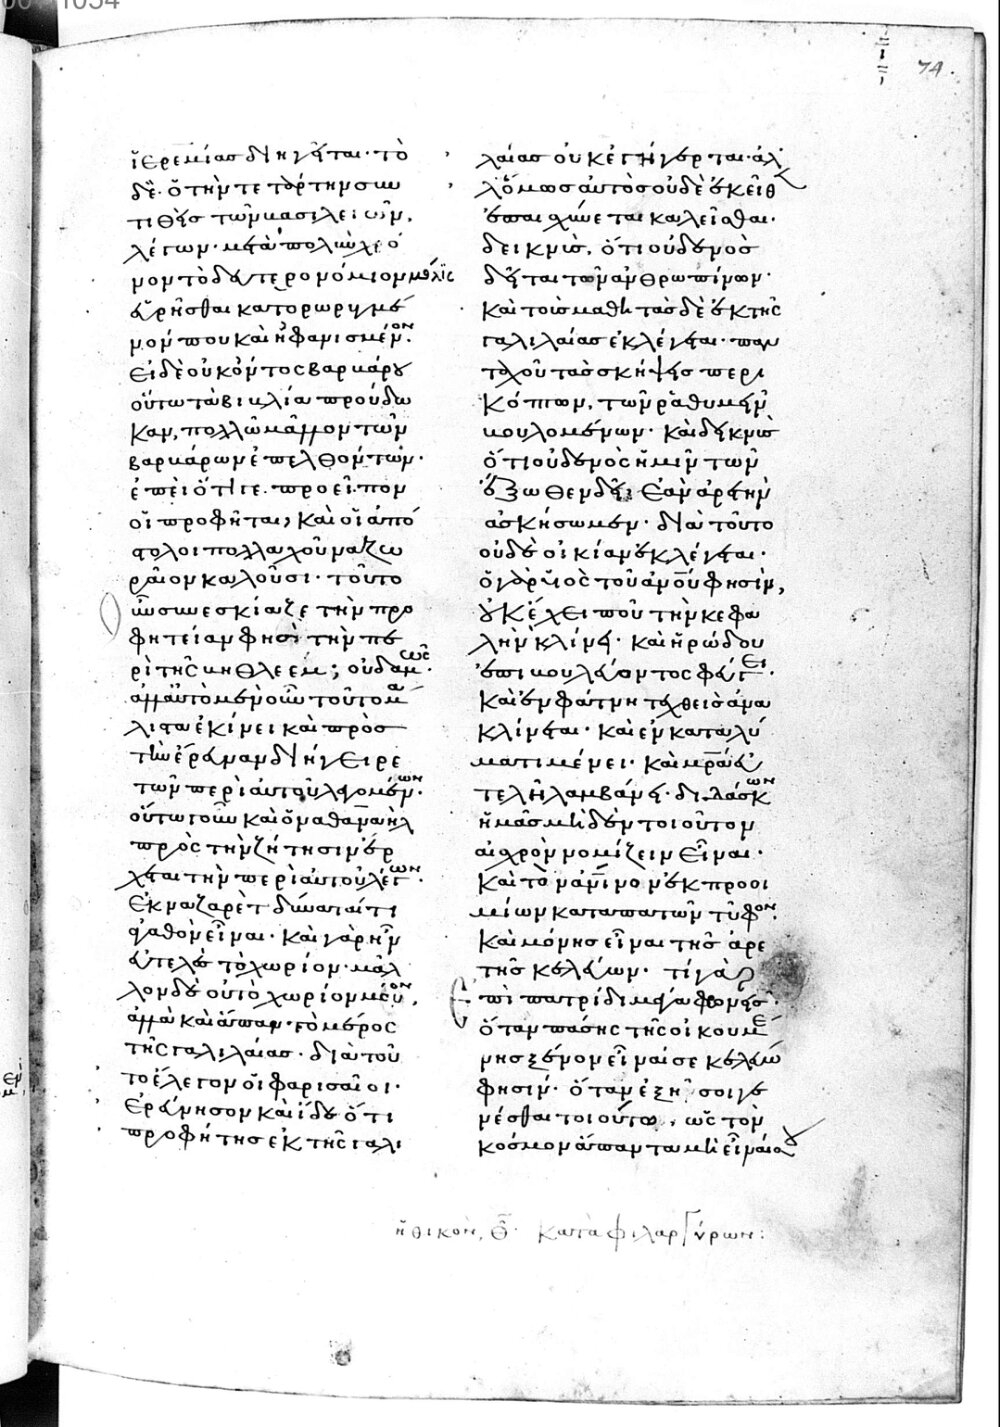 74.
ἱερεμίας διηγεῖται· τὸ
δὲ. ὅτε τὴν τετάρτην συν
τιθεὶς τῶν βασιλειῶν,
λέγων· μετὰ πολὺν χρό
νον τὸ δευτερονόμιον μόλις
εὑρῆσθαι κατορωρυγμέ
νον που καὶ ἠφανισμένον.
Εἰ δὲ οὐκ ὄντος βαρβάρου
οὕτω τὰ βιβλία προύδω
καν, πολλῶ μᾶλλον τῶν
βαρβάρων ἐπελθόντων·
ἐπεὶ ὅτι γε προεῖπον
οἱ προφῆται, καὶ οἱ ἀπό
στολοι πολλαχοῦ ναζω
ραῖον καλοῦσι· τοῦτο
οὖν συνεσκίαζε τὴν προ
φητείαν φησὶ τὴν πε
ρὶ τῆς βηθλεέμ; οὐδαμῶς·
ἀλλ' αὐτὸ μὲν οὖν τοῦτο μά
λιστα ἐκίνει καὶ πρὸς
τὴν ἔρευναν διήγειρε
τῶν περὶ αὐτοῦ λεγομένων·
οὕτω γοῦν καὶ ὁ ναθαναὴλ
πρὸς τὴν ζήτησιν ἔρ
χεται τὴν περὶ αὐτοῦ λέγων·
Ἐκ ναζαρὲτ δύναταί τι
ἀγαθὸν εἶναι· καὶ γὰρ ἦν
εὐτελὲς τὸ χωρίον· μᾶλ
λον δὲ οὐ τὸ χωρίον μόνον,
ἀλλὰ καὶ ἅπαν τὸ μέρος
τῆς γαλιλαίας· διὰ τοῦ
το ἔλεγον οἱ φαρισαῖοι·
Ἐρεύνησον καὶ ἴδε ὅτι
προφήτης ἐκ τῆς γαλι
λαίας οὐκ ἐγήγερται· ἀλ
λ' ὅμως αὐτὸς οὐδὲ ἐκεῖθεν
ἐπαισχύνεται καλεῖσθαι·
δεικνὺς, ὅτι οὐδενὸς
δεῖται τῶν ἀνθρωπίνων·
Καὶ τοὺς μαθητὰς δὲ ἐκ τῆς
γαλιλαίας ἐκλέγεται· παν
ταχοῦ τὰς σκήψεις περι
κόπτων, τῶν ῥαθυμεῖν
βουλομένων· καὶ δεικνὺς
ὅτι οὐδενὸς ἡμῖν τῶν
ἔξωθεν δεῖ, ἐὰν ἀρετὴν
ἀσκήσωμεν· διὰ τοῦτο
οὐδὲ οἰκίαν ἐκλέγεται·
ὁ γὰρ υἱὸς τοῦ ἀνου φησὶν,
οὐκ ἔχει ποῦ τὴν κεφα
λὴν κλίνῃ· καὶ ἡρώδου
ἐπιβουλεύοντος φεύγει·
Καὶ ἐν φάτνη τεχθεὶς ἀνα
κλίνεται· καὶ ἐν καταλύ
ματι μένει· καὶ μρα εὐ
τελῆ λαμβάνει· διδάσκων
ἡμᾶς μηδὲν τοιοῦτον
αἰσχρὸν νομίζειν εἶναι·
Καὶ τὸν ἀνινον ἐκ προοι
μίων καταπατῶν τῦφον.
Καὶ μόνης εἶναι τῆς ἀρε
τῆς κελεύων· τί γὰρ
ἐπὶ πατρίδι μέγα φρονεῖς·
ὅταν πάσης τῆς οἰκουμέ
νης ξένον εἶναί σε κελεύω
φησίν· ὅταν ἐξῆ σοι γε
νέσθαι τοιούτω, ὡς τὸν
κόσμον ἅπαντα μὴ εἶναί σου
ἠθικὸν, θ· Κατὰ φιλαργύρων: